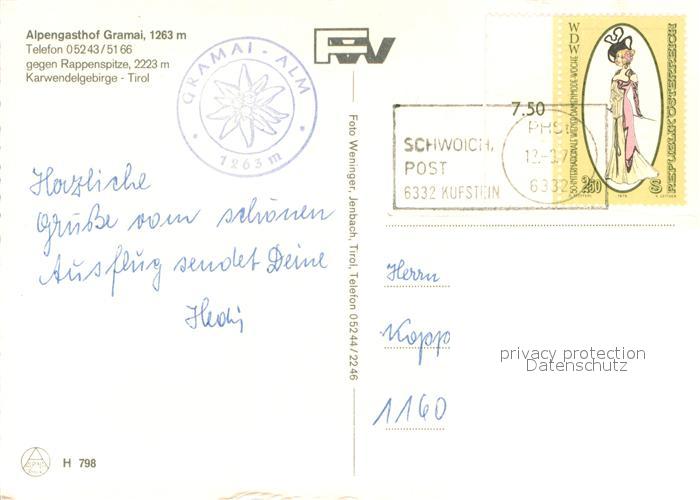 Alpengasthof Gramai, 1263 m
Telefon 05243/5166
gegen Rappenspitze, 2223 m
Karwendelgebirge - Tirol
GRAMAI - ALM
1263 m
FW
Herzliche
Grüße vom schönen
Ausflug sendet Deine
Hedi
H 798
Foto Weninger, Jenbach, Tirol, Telefon 05244/2246
7.50
SCHWOICH,
POST
6332 KUFSTEIN
6332
WDW
REPUBLIK ÖSTERREICH
2.50
S
Herrn
Kopp
1160
privacy protection
Datenschutz